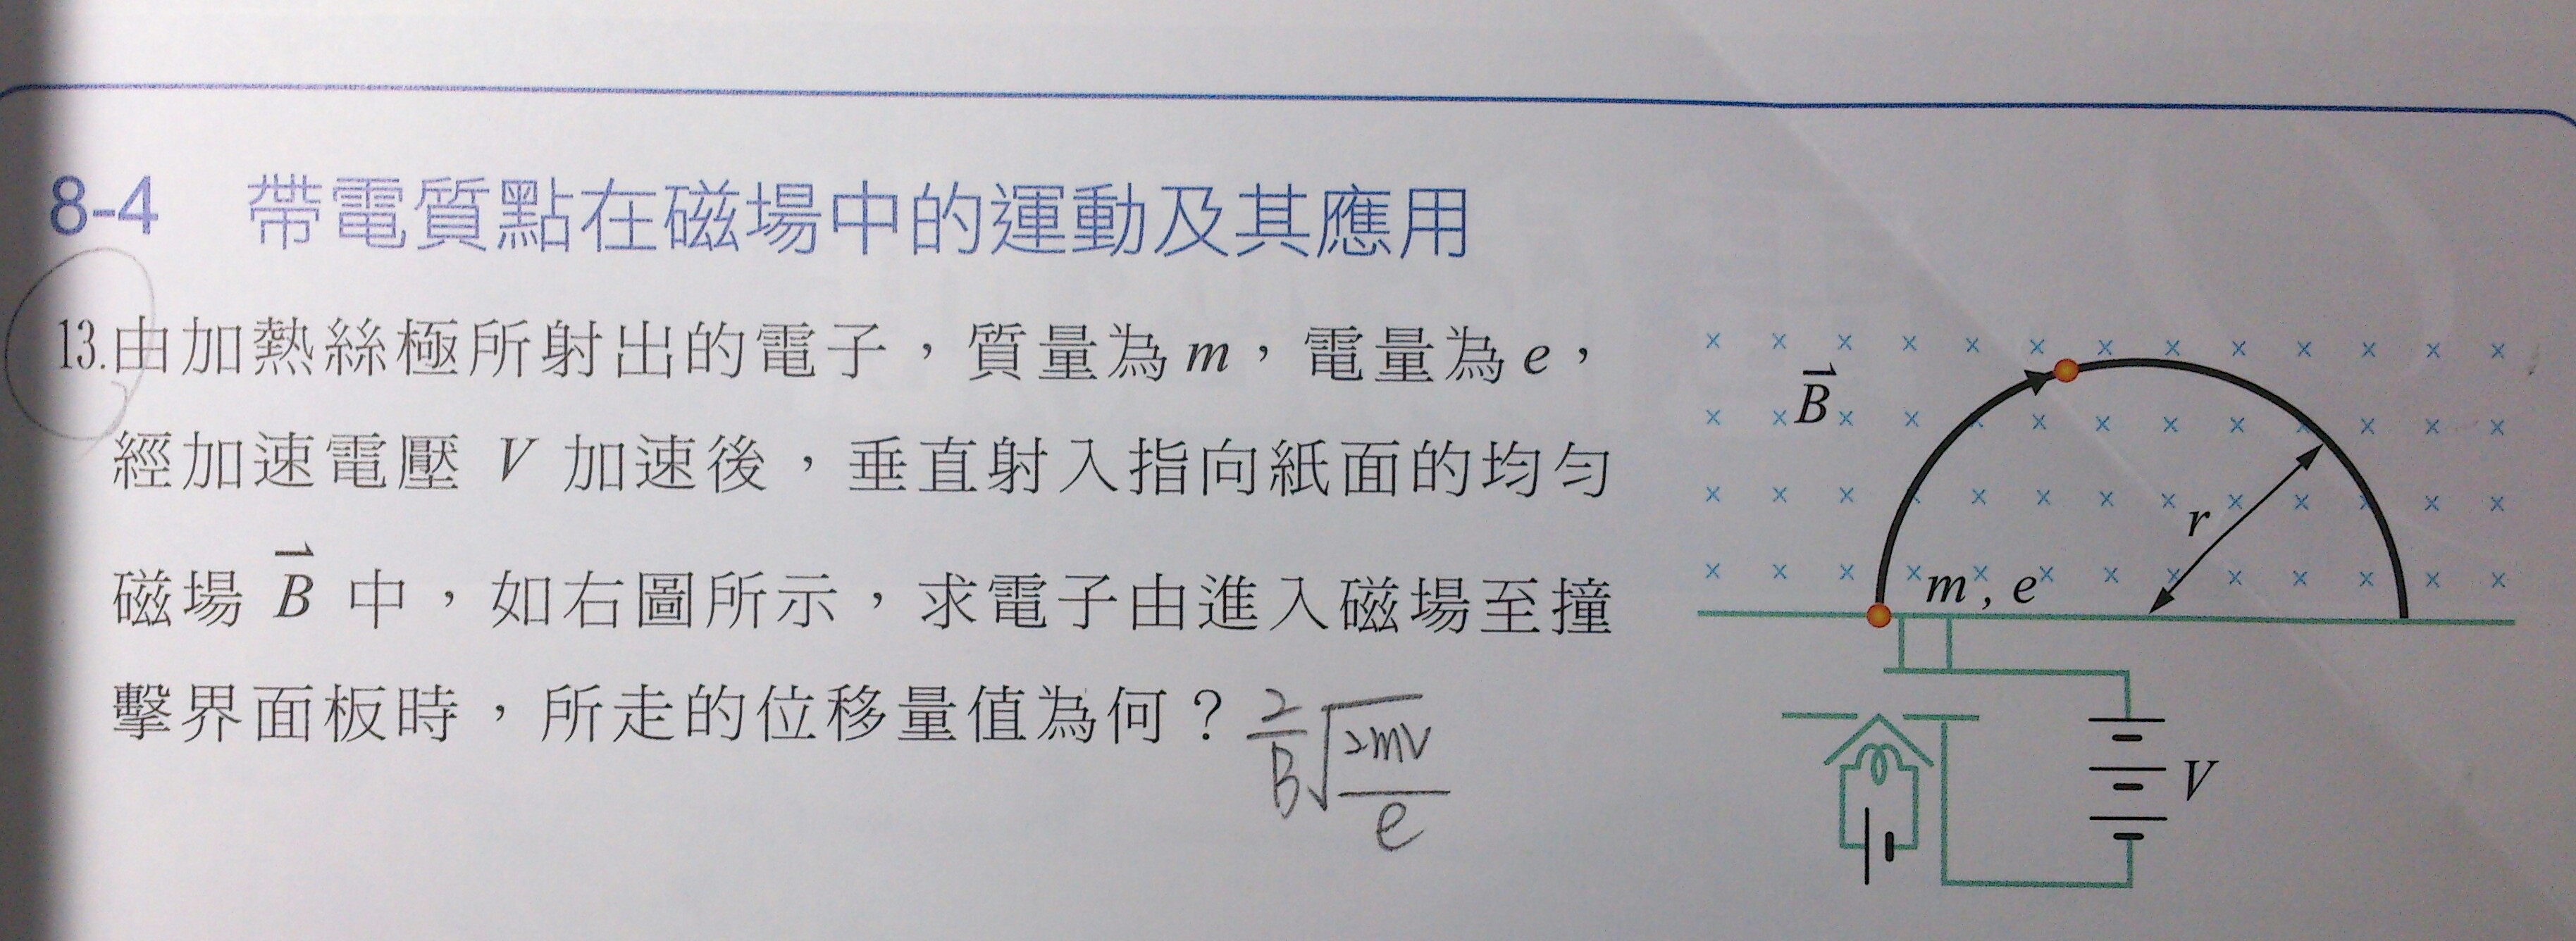 8-4 帶電質點在磁場中的運動及其應用
13.由加熱絲極所射出的電子，質量為m，電量為e，
經加速電壓 V 加速後，垂直射入指向紙面的均勻
磁場 B⃗ 中，如右圖所示，求電子由進入磁場至撞
擊界面板時，所走的位移量值為何？ 2/B √(2mV/e)
B⃗
r
m, e
V